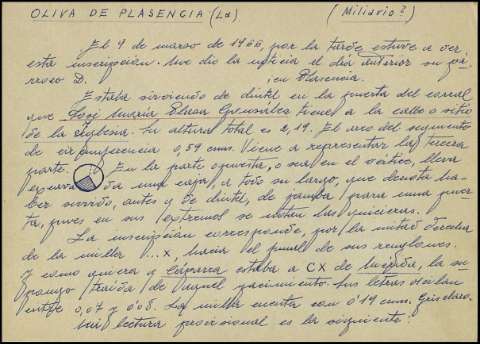 OLIVA DE PLASENCIA (La) (Miliario?)
El 9 de marzo de 1966, por la tarde, estuve a ver
esta inscripción. Me dio la noticia el día anterior su pá-
rroco D. en Plasencia.
Estaba sirviendo de dintel en la puerta del corral
que José María Elena González tiene a la calle o sitio
de la Iglesia. Su altura total es 2,19. El arco del segmento
de circunferencia 0,59 cms. Viene a representar la tercera
parte. En la parte opuesta, o sea en el vértice, lleva
excava da una caja, a todo su largo, que denota ha-
ber servido, antes y de dintel, de jamba para una puer-
ta, pues en sus extremos se notan las quicieras.
La inscripción corresponde, por la mitad derecha
de la muller ...x, hacia el final de sus renglones.
Y como quiera q Cáparra estaba a CX de Mérida, la su-
pongo traída de aquel yacimiento. Sus letras oscilan
entre 0,07 y 0'08. La muller cuenta con 0'19 cms.
Mi lectura provisional es la siguiente: